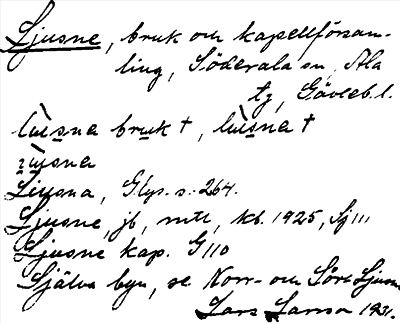 Ljusne, bruk och kapellförsam-
ling, Söderala sn, Ala
tg, Gävleb. l.
lùsna bruk †, lùsna †
lùsna
Liusna, Glys. s. 264.
Ljusne, jb, mtl, kb. 1925, Sj 111
Ljusne kap. G 110
Själva byn, se Norr- och Sör-Ljusne
Lars Larson 1931.